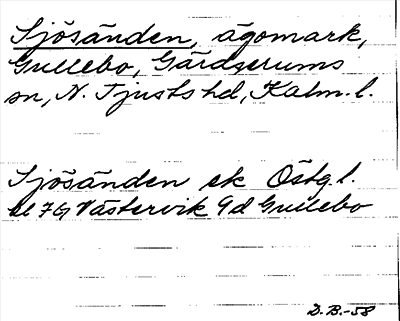 Sjösänden, ägomark,
Gullebo, Gärdserums
sn, N. Tjusts hd, Kalm. l.
Sjösänden ek Östg. l.
bl 7G Västervik 9d Gullebo
D.B.-58